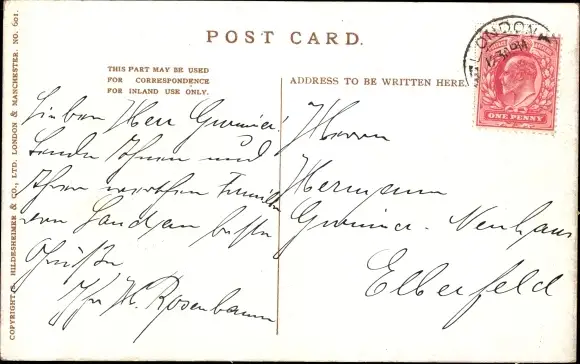 POST CARD.
THIS PART MAY BE USED
FOR CORRESPONDENCE
FOR INLAND USE ONLY.
ADDRESS TO BE WRITTEN HERE.
LONDON
12.30 PM
ONE PENNY
Lieben Herr
Sende Ihnen und
Ihrer werthen Familie
beste
Grüße
Ihr H. Rosenbaum
Herrn
Hermann
Neuhaus
Elberfeld
COPYRIGHT. HILDESHEIMER & CO., LTD. LONDON & MANCHESTER. NO. 601.